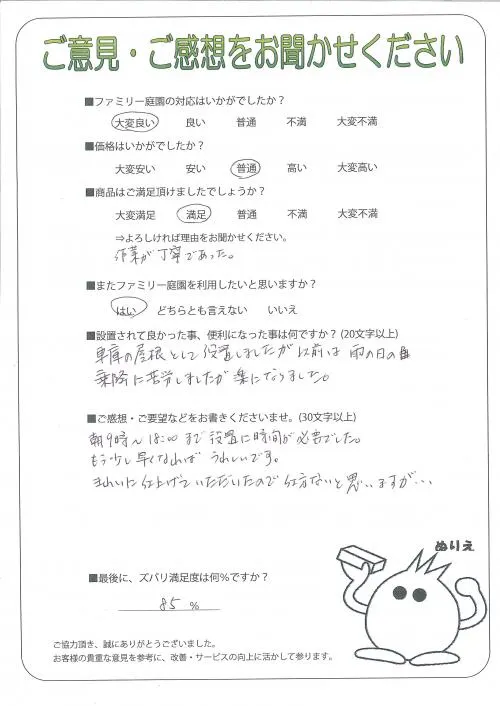 ご意見・ご感想をお聞かせください
■ファミリー庭園の対応はいかがでしたか？
大変良い 良い 普通 不満 大変不満
■価格はいかがでしたか？
大変安い 安い 普通 高い 大変高い
■商品はご満足頂けましたでしょうか？
大変満足 満足 普通 不満 大変不満
⇒よろしければ理由をお聞かせください。
作業が丁寧であった。
■またファミリー庭園を利用したいと思いますか？
はい どちらとも言えない いいえ
■設置されて良かった事、便利になった事は何ですか？(20文字以上)
車庫の屋根として設置しましたが以前は雨の日の
乗降に苦労しましたが楽になりました。
■ご感想・ご要望などをお書きくださいませ。(30文字以上)
朝9時〜18:00まで設置に時間が必要でした。
もう少し早くなれば うれしいです。
きれいに仕上げていただいたので仕方ないと思いますが…
ぬりえ
■最後に、ズバリ満足度は何％ですか？
85 %
ご協力頂き、誠にありがとうございました。
お客様の貴重な意見を参考に、改善・サービスの向上に活かして参ります。